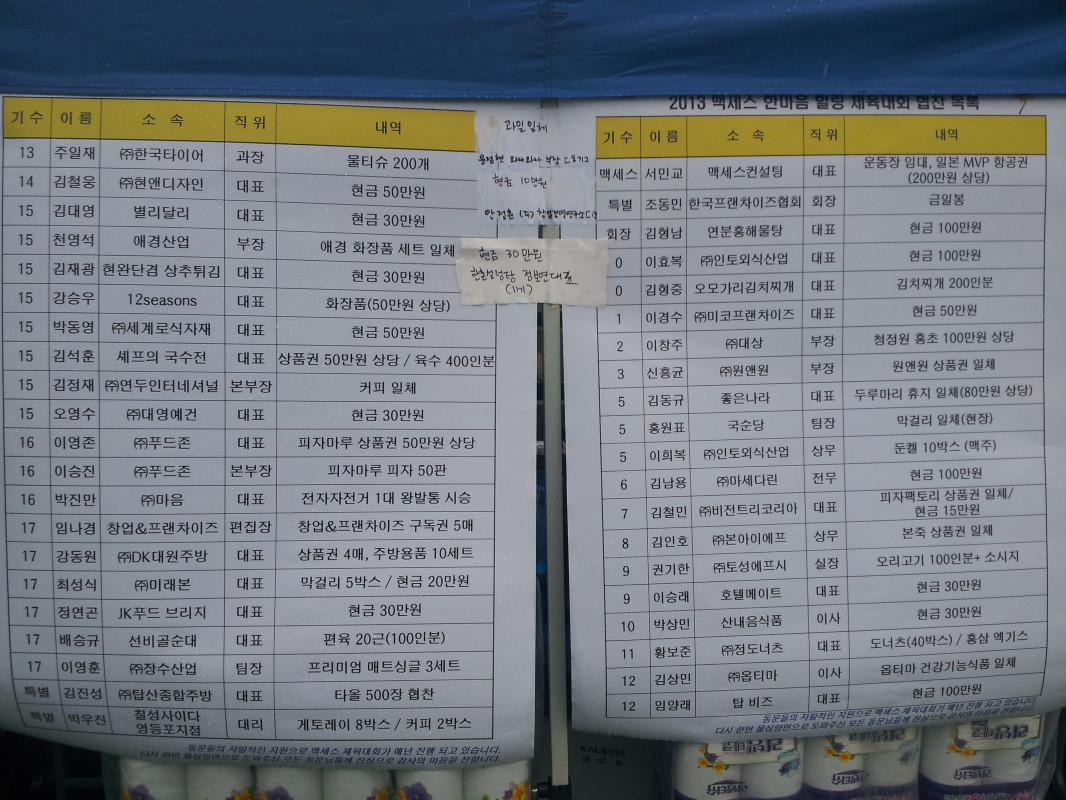 기수 이름 소속 직위 내역
13 주일재 ㈜한국타이어 과장 물티슈 200개
14 김철웅 ㈜현앤디자인 대표 현금 50만원
15 김대영 별리달리 대표 현금 30만원
15 천영석 애경산업 부장 애경 화장품 세트 일체
15 김재광 현완단겸 상추튀김 대표 현금 30만원
15 강승우 12seasons 대표 화장품(50만원 상당)
15 박동영 ㈜세계로식자재 대표 현금 50만원
15 김석훈 셰프의 국수전 대표 상품권 50만원 상당 / 육수 400인분
15 김정재 ㈜연두인터네셔널 본부장 커피 일체
15 오영수 ㈜대영예건 대표 현금 30만원
16 이영존 ㈜푸드존 대표 피자마루 상품권 50만원 상당
16 이승진 ㈜푸드존 본부장 피자마루 피자 50판
16 박진만 ㈜마음 대표 전자자전거 1대 왕발통 시승
17 임나경 창업&프랜차이즈 편집장 창업&프랜차이즈 구독권 5매
17 강동원 ㈜DK대원주방 대표 상품권 4매, 주방용품 10세트
17 최성식 ㈜미래본 대표 막걸리 5박스 / 현금 20만원
17 정연곤 JK푸드 브리지 대표 현금 30만원
17 배승규 선비골순대 대표 편육 20근(100인분)
17 이영훈 ㈜장수산업 팀장 프리미엄 매트싱글 3세트
특별 김진성 ㈜탑산종합주방 대표 타올 500장 협찬
특별 박우진 칠성사이다 영등포지점 대리 게토레이 8박스 / 커피 2박스
동문들의 자발적인 지원으로 맥세스 체육대회가 매년 진행 되고 있습니다.
다시 한번 물심양면으로 도와주신 모든 동문님들께 진심으로 감사의 마음을 전합니다.
과일일체
현금 10만원
현금 30만원
(11기)
2013 맥세스 한마음 힐링 체육대회 협찬 목록
기수 이름 소속 직위 내역
맥세스 서민교 맥세스컨설팅 대표 운동장 임대, 일본 MVP 항공권
(200만원 상당)
특별 조동민 한국프랜차이즈협회 회장 금일봉
회장 김형남 연분홍해물탕 대표 현금 100만원
0 이효복 ㈜인토외식산업 대표 현금 100만원
0 김형중 오모가리김치찌개 대표 김치찌개 200인분
1 이경수 ㈜미코프랜차이즈 대표 현금 50만원
2 이창주 ㈜대상 부장 청정원 홍초 100만원 상당
3 신흥균 ㈜원앤원 부장 원앤원 상품권 일체
5 김동규 좋은나라 대표 두루마리 휴지 일체(80만원 상당)
5 홍원표 국순당 팀장 막걸리 일체(현장)
5 이희복 ㈜인토외식산업 상무 둔켈 10박스 (맥주)
6 김남용 ㈜마세다린 전무 현금 100만원
7 김철민 ㈜비전트리코리아 대표 피자팩토리 상품권 일체/
현금 15만원
8 김인호 ㈜본아이에프 상무 본죽 상품권 일체
9 권기한 ㈜토성에프시 실장 오리고기 100인분+ 소시지
9 이승래 호텔메이트 대표 현금 30만원
10 박상민 산내음식품 이사 현금 30만원
11 황보준 ㈜정도너츠 대표 도너츠(40박스) / 홍삼 엑기스
12 김상민 ㈜옵티마 이사 옵티마 건강기능식품 일체
12 임양래 탑 비즈 대표 현금 100만원
동문들의 자발적인 지원으로 맥세스 체육대회가 매년 진행 되고 있습니다.
다시 한번 물심양면으로 도와주신 모든 동문님들께 진심으로 감사의 마음을 전합니다.